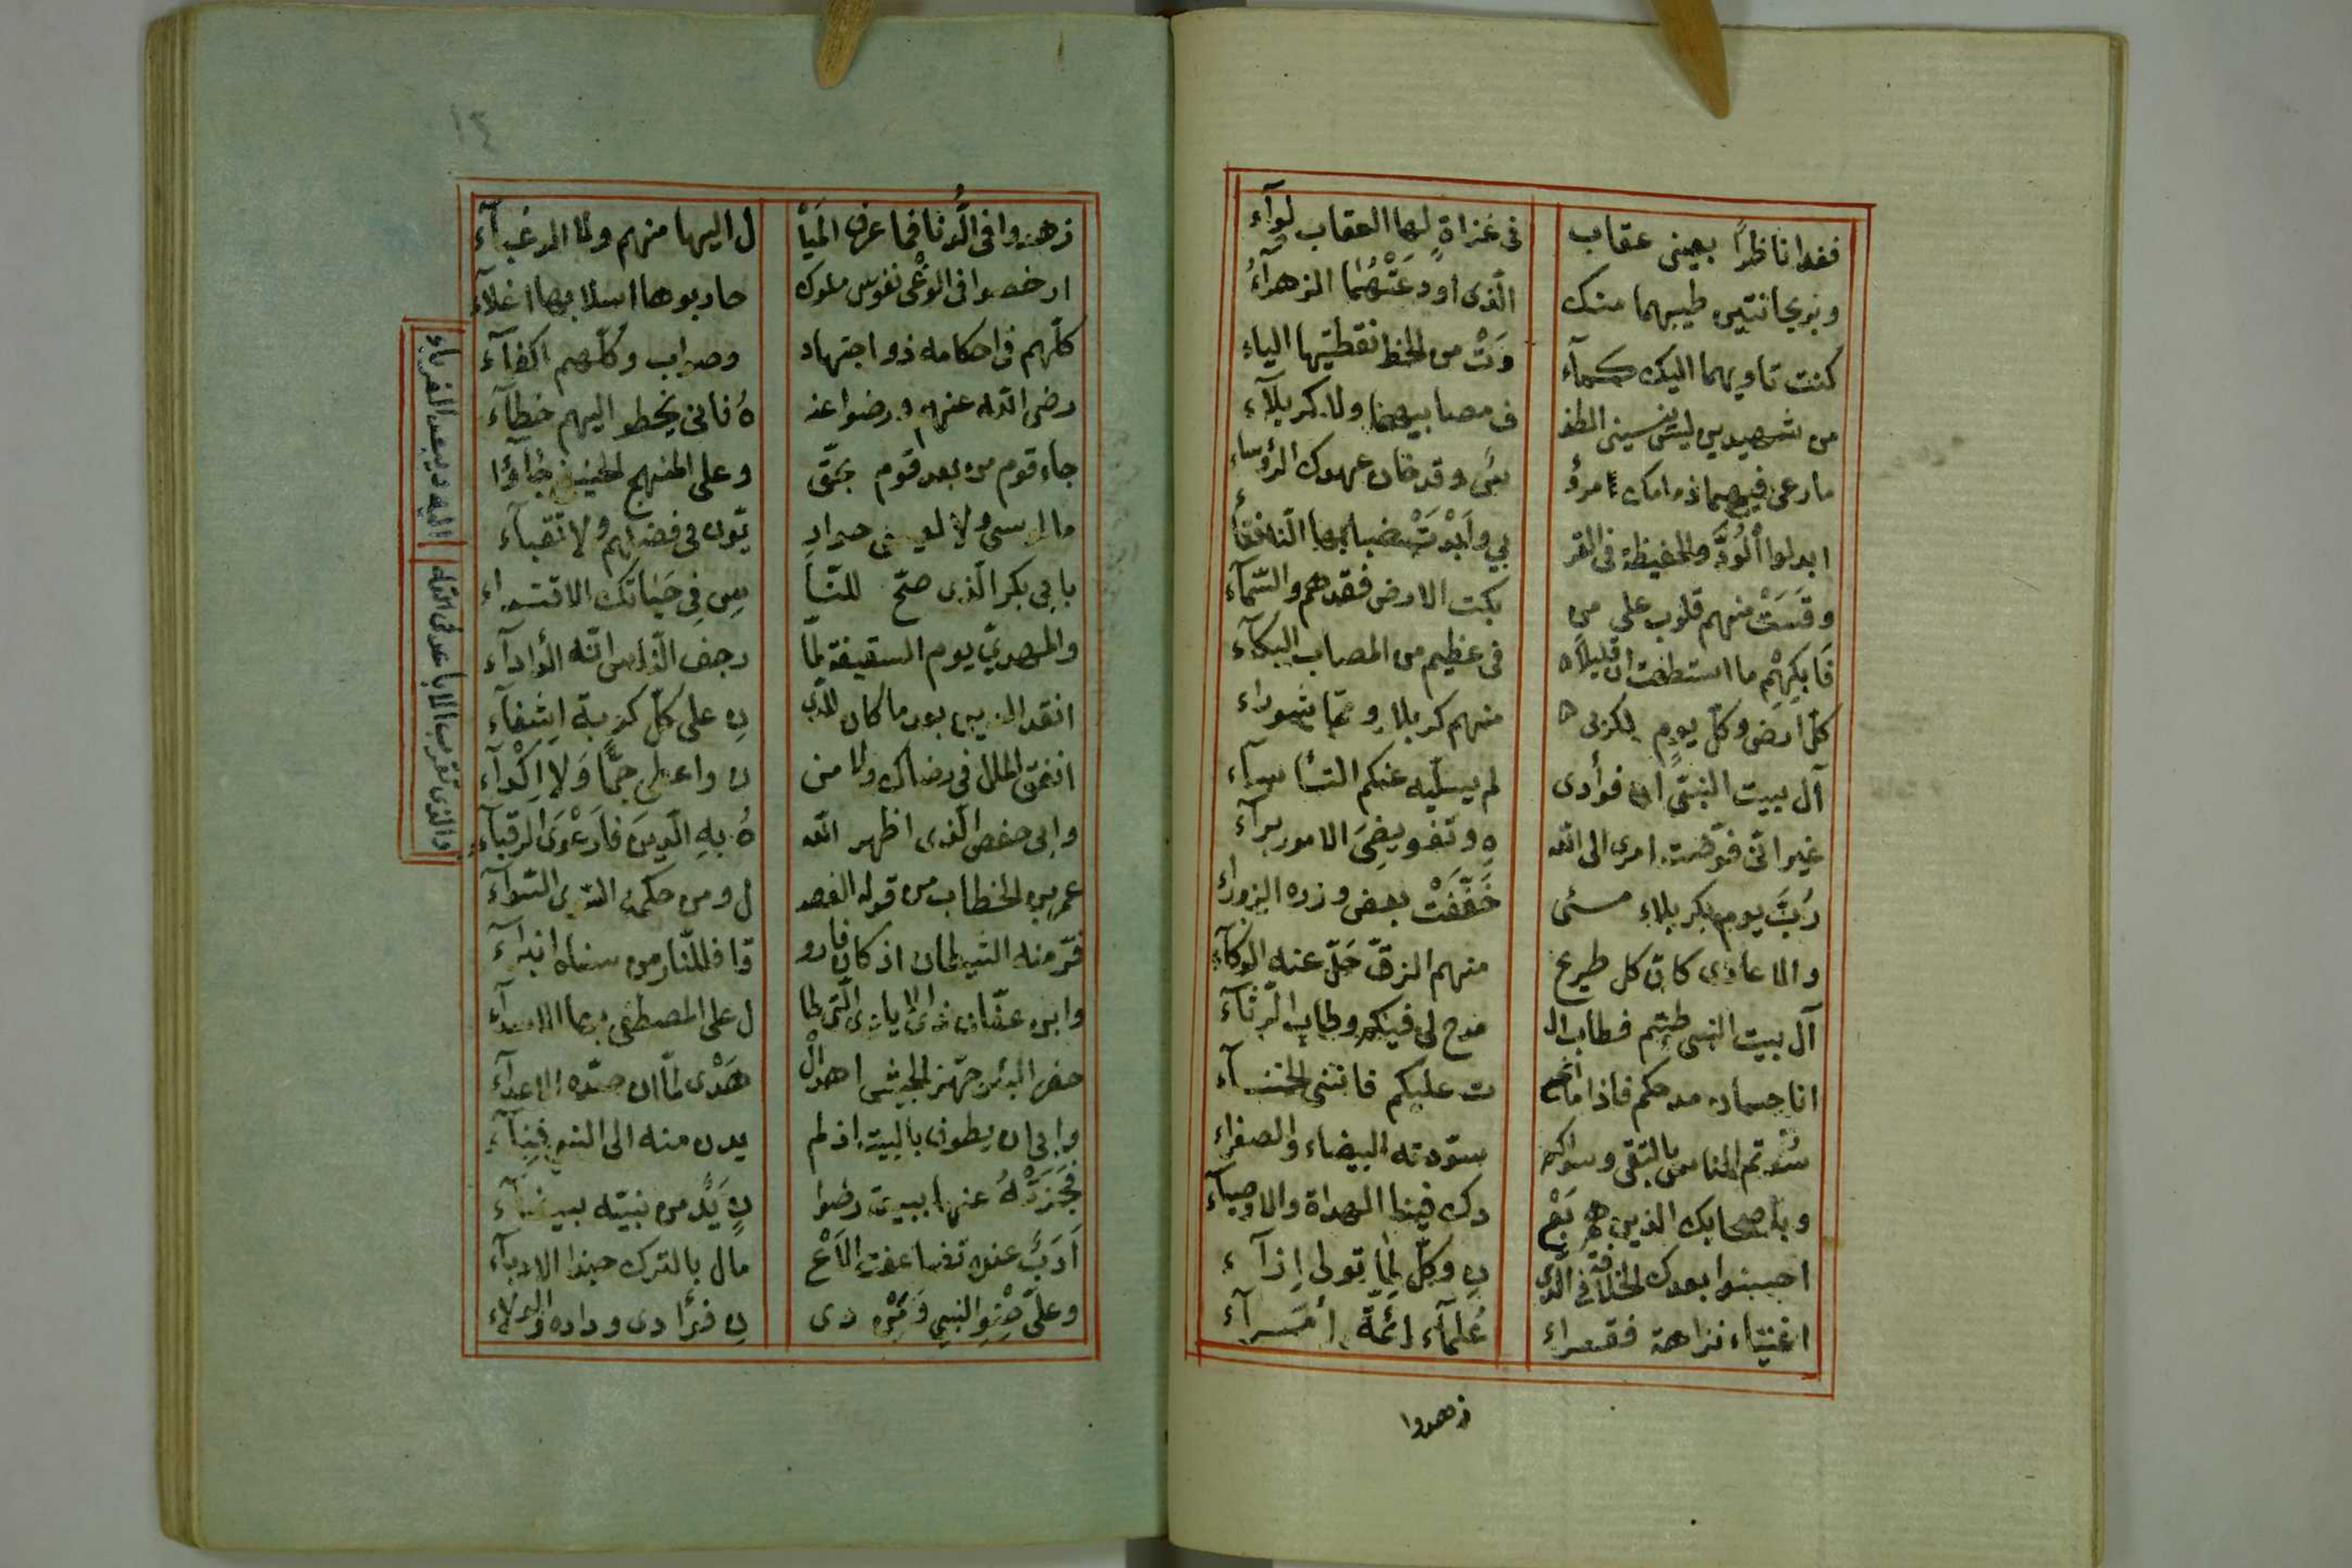 فغدا ناظرًا بعينى عقاب فى غزاةٍ لها العقاب لوآء
وبريحانتين طيبهما منك الّذى اودَعَتْهُمَا الزهرآءُ
كنت تاويهما اليك كمآء وَتْ من الخط نقطتيها الياء
من شهيدين ليس ينسينى الطف ف مصابيهما ولا كربلآء
مارعى فيهما ذمامك امرؤ سَى وقد خان عهدك الرؤساء
ابدلوا الْوُدَّ والحفيظة فى القر بي وابْدَتْ ضبابها النافقآء
وقَسَتْ منهم قلوب على من بكت الارض فقدهم والسّمآء
فَابكِهِمْ ما استطعت ان قليلاه فى عظيم من المصاب البكآء
كلّ ارض وكل يومٍ لكربى ه منهم كربلا وعاشوراء
آل بيت النبىّ ان فوأدى لم يسليه عنكم التأسآء
غير انّى فوّضت امرى الى الله ه وتفويضِىَ الامور برآء
رُبَّ يوم بكربلاء مسئى خَفَّفَتْ بعض وزره الزوراء
والاعادى كان كل طريح منهم الزقّ حَلّ عنه الوكآء
آل بيت النبى طبتم فطاب ال مدح لى فيكم وطاب الرثآء
انا حسان مدحكم فاذا مانح ت عليكم فاننى الخنسآء
سُدتم الناس بالتقى وسواكم سوّدته البيضاء والصفراء
وباصحابك الذين هم بَعْ دك فينا الهداة والاوصيآء
احسنوا بعدك الخلافة فى الدى ن وكلّ لِمَا تولى اِذآء
اغنياء نزاهة فقراء عُلمآء ائمّة امرآء
زهدوا
زهدوا فى الدُّنا فما عرف المَيْ ل اليها منهم ولا الرغبآء
ارخصوا فى الوغْى نفوس ملوك حاربوها اسلابها اغلاء
كلّهم فى احكامه ذو اجتهاد وصواب وكُلّهم اكفآء
رضى الله عنهم ورضوا عنه هُ فانى يخطو اليهم خطآء
جاء قوم من بعد قوم بحَقّ وعلى المنهج الحنيفي جآؤا
مالموسى ولا لعيسى حوارِ يّون فى فضلهم ولا نُقبآء
بابى بكر الّذى صحّ للنّا سِ فِى حَيَاتك الاقتداء
والمهديّ يوم السقيفة لمّا رجف النّاس انّه الدأدآء
انقذ الدين بعد ما كان للدى نِ على كلّ كربة اِشفآء
انفق المال فى رضاك ولا من ن واعطى جمًّا وَلا اِكْدآء
وابى حفص الّذى اظهر الله هُ بهِ الدّينَ فارْعوَى الرقبآء
والذى تقرب الاباعد فى الله اليه ويبعد القرباء
عمر بن الخطاب من قوله الفصد ل ومن حكمه السّوى السّوآء
فرّ منه الشيطان اذ كان فارو قا فللنّار من سناه انبرآء
وابن عفّان ذى الايادى الّتى طا ل على المصطفى بها الاسدآء
حفر البئر جهّز الجيش اهدى الْ هَدْى لمّا ان صدّه الاعدآء
وابى ان يطوف بالبيت اذ لم يدن منه الى النبى فِنآء
فَجَزَتْهُ عنها ببيعة رضوا نٍ يَدٌ من نبيّه بيضآء
اَدَبٌ عنده تضاعفت الاَعْ مال بالترك حبّذا الادبآء
وعلى صِنْوِ النبي وَمَنْ دى نِ فؤادى وداده والولآء